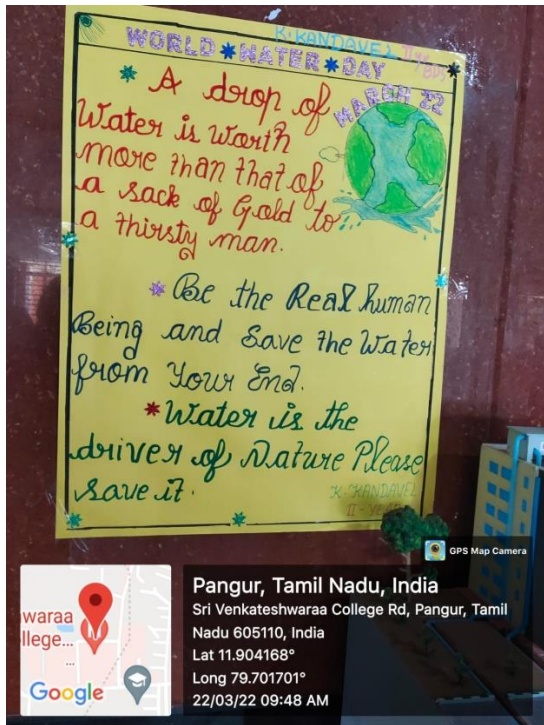 K.KANDAVEL II yr
BDS
WORLD WATER DAY
MARCH 22
A drop of
Water is worth
more than that of
a sack of Gold to
a thirsty man.
Be the Real human
Being and Save the Water
from Your End.
Water is the
driver of Nature Please
save it.
K.KANDAVEL
II-YEAR
GPS Map Camera
waraa
llege...
...
Google
Pangur, Tamil Nadu, India
Sri Venkateshwaraa College Rd, Pangur, Tamil
Nadu 605110, India
Lat 11.904168°
Long 79.701701°
22/03/22 09:48 AM